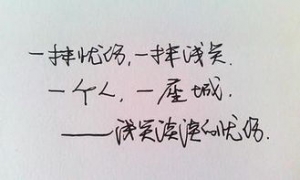 一抹忧伤,一抹浅笑.
一个人,一座城.
——浅笑淡淡的忧伤.